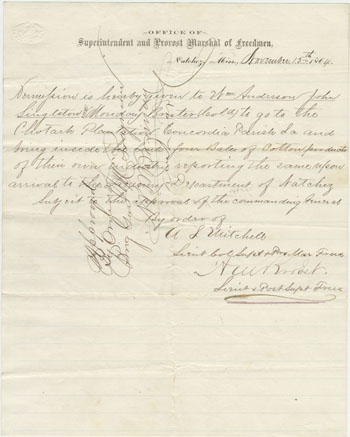 OFFICE OF
Superintendent and Provost Marshal of Freedmen,
Natchez, Miss, November 13th 1864
Permission is hereby given to Wm Anderson John
Singleton & Monday to go to the
Plantation Concordia Parish La and
bring inside the four Bales of Cotton products
of their own industry reporting the same upon
arrival to the Department of Natchez
Subject to the approval of the commanding General
By order of
A S Mitchell
Lieut Col Supt & Pro Mar Free
Lieut & Post Supt Free
Approved